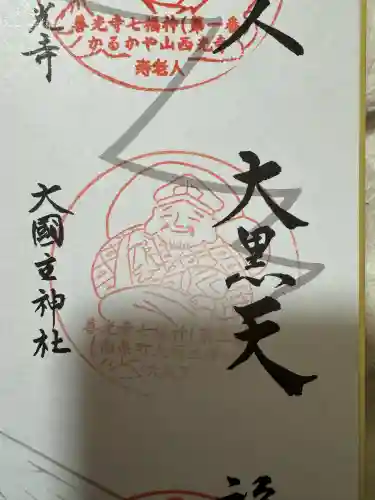 人
善光寺七福神(第一番
かるかや山西光寺
寿老人
光寺
大黒天
大國主神社
善光寺七福神(第二